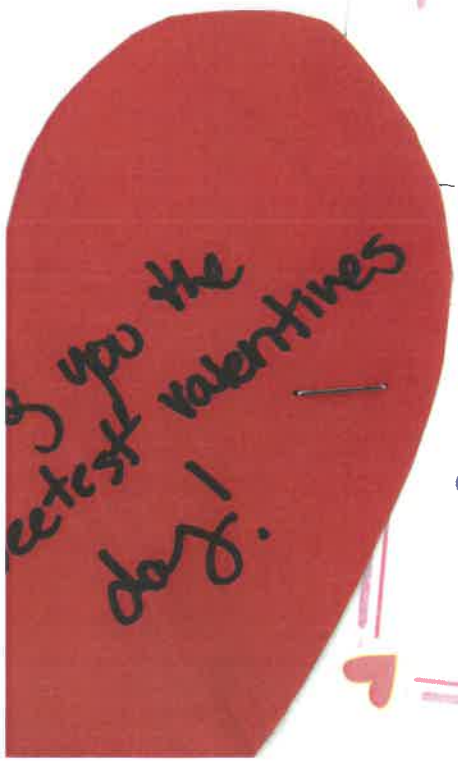 g you the
eetest valentines
day!